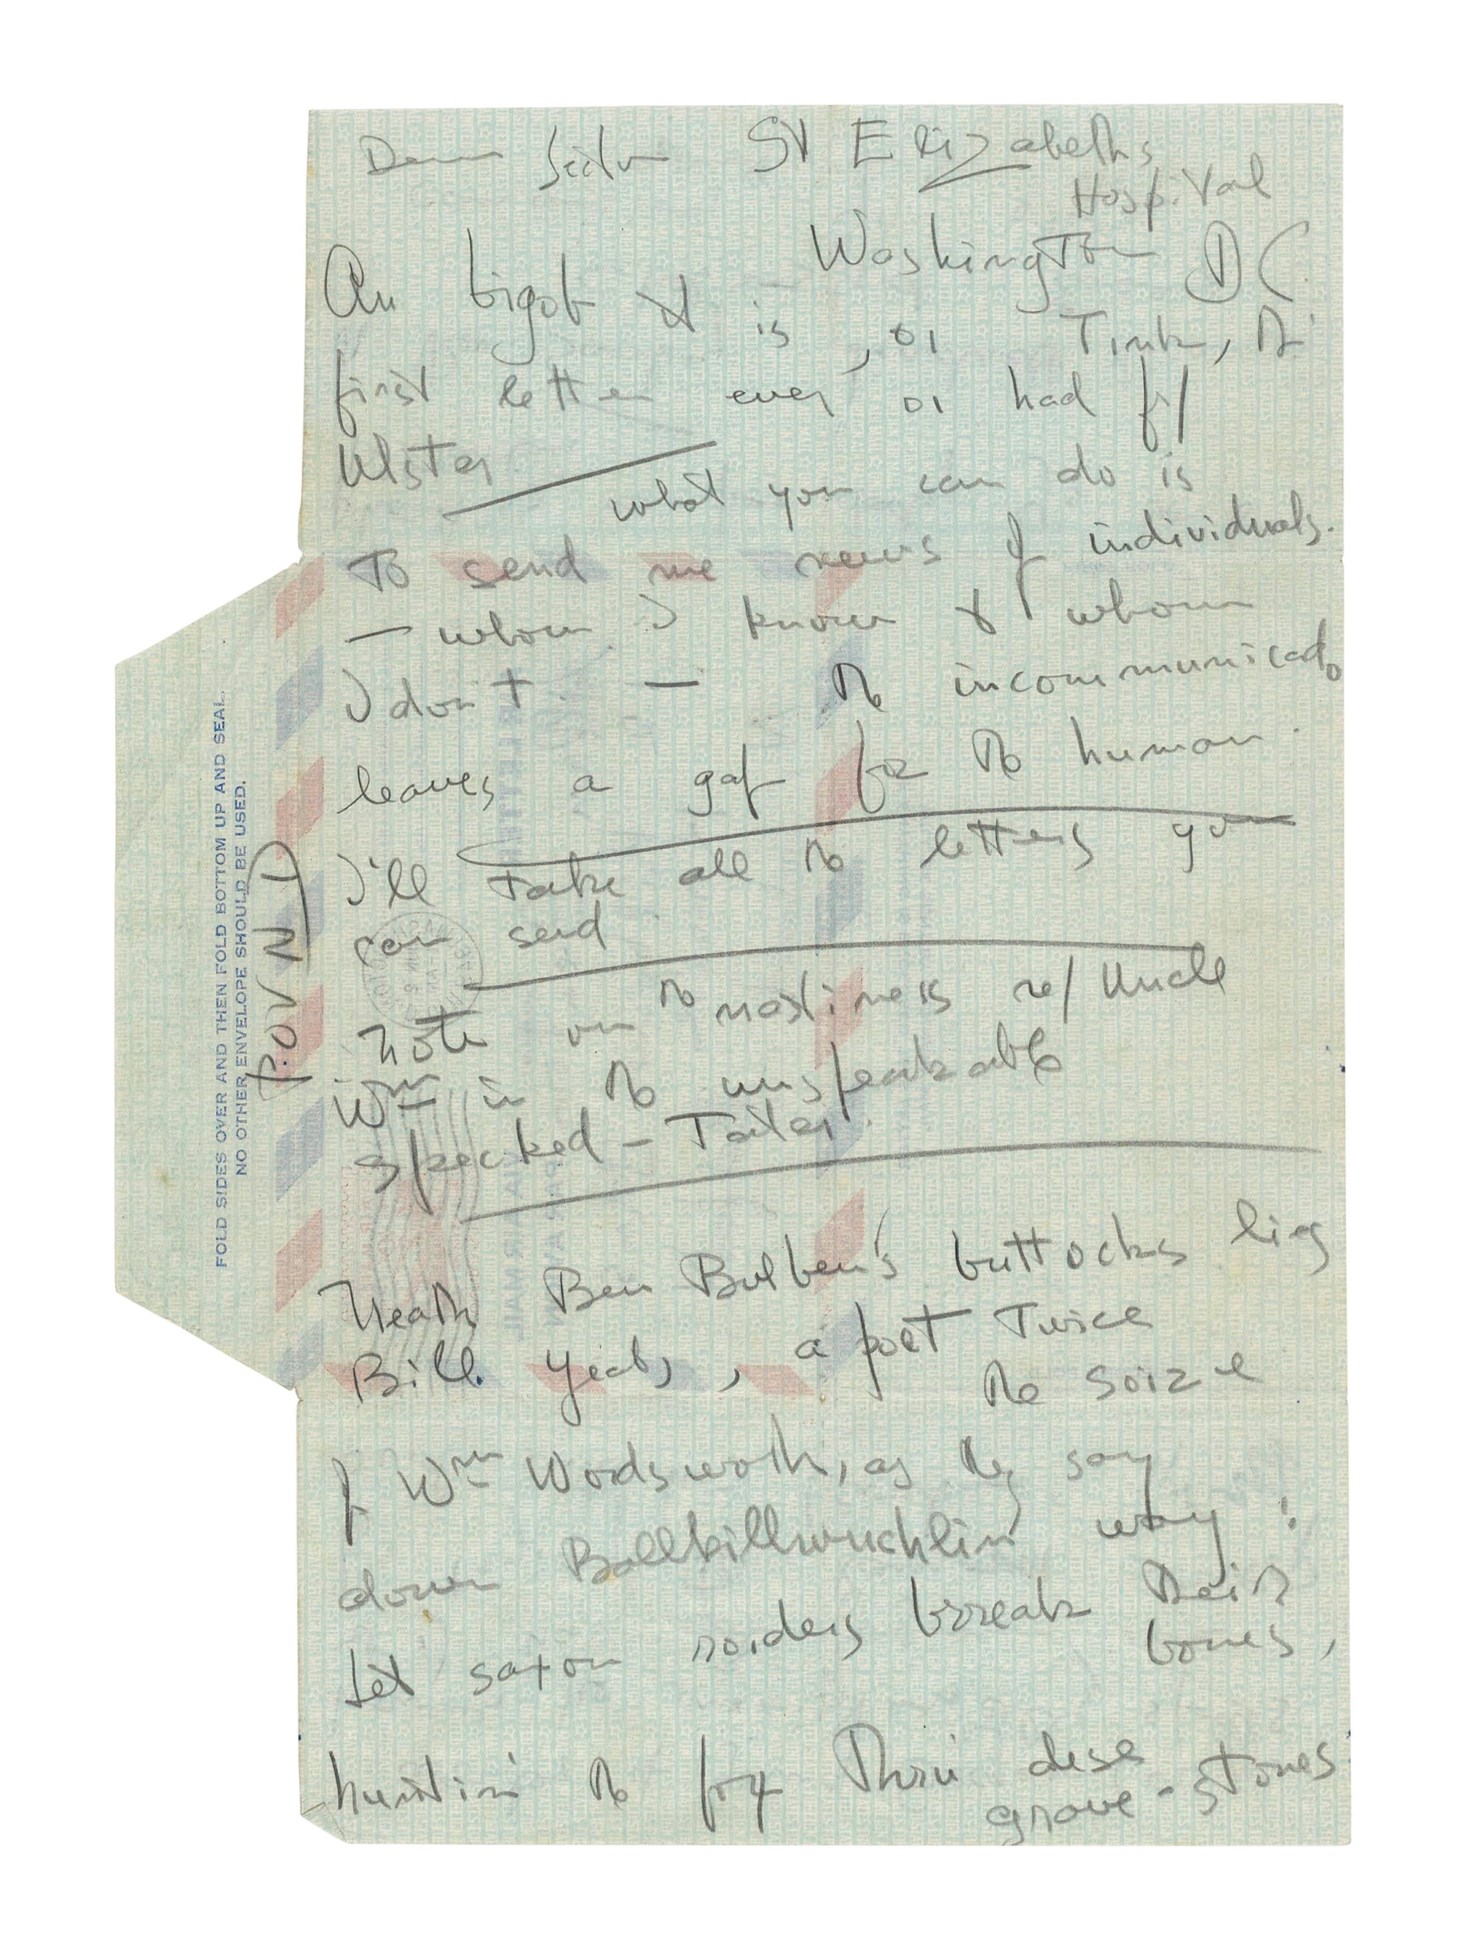 St Elizabeths
Hospital
Washington D C.
An bigob it is, oi Tink, th
first letter ever oi had f/
Ulster
what you can do is
to send me news of individuals.
— whom I know & whom
I don't — the incommunicado
leaves a gap for the human.
I'll take all the letters you
can send
note on the nastiness re/ Uncle
Wm in the unspeakable
speckled - Tater.
Neath Ben Bulben's buttocks lies
Bill Yeats, a poet twice
the soize
of Wm Wordsworth, as they say
down way:
Let saxon roiders break their
bones,
huntin the fox thru dese
grave-stones
POUND
FOLD SIDES OVER AND THEN FOLD BOTTOM UP AND SEAL.
NO OTHER ENVELOPE SHOULD BE USED.